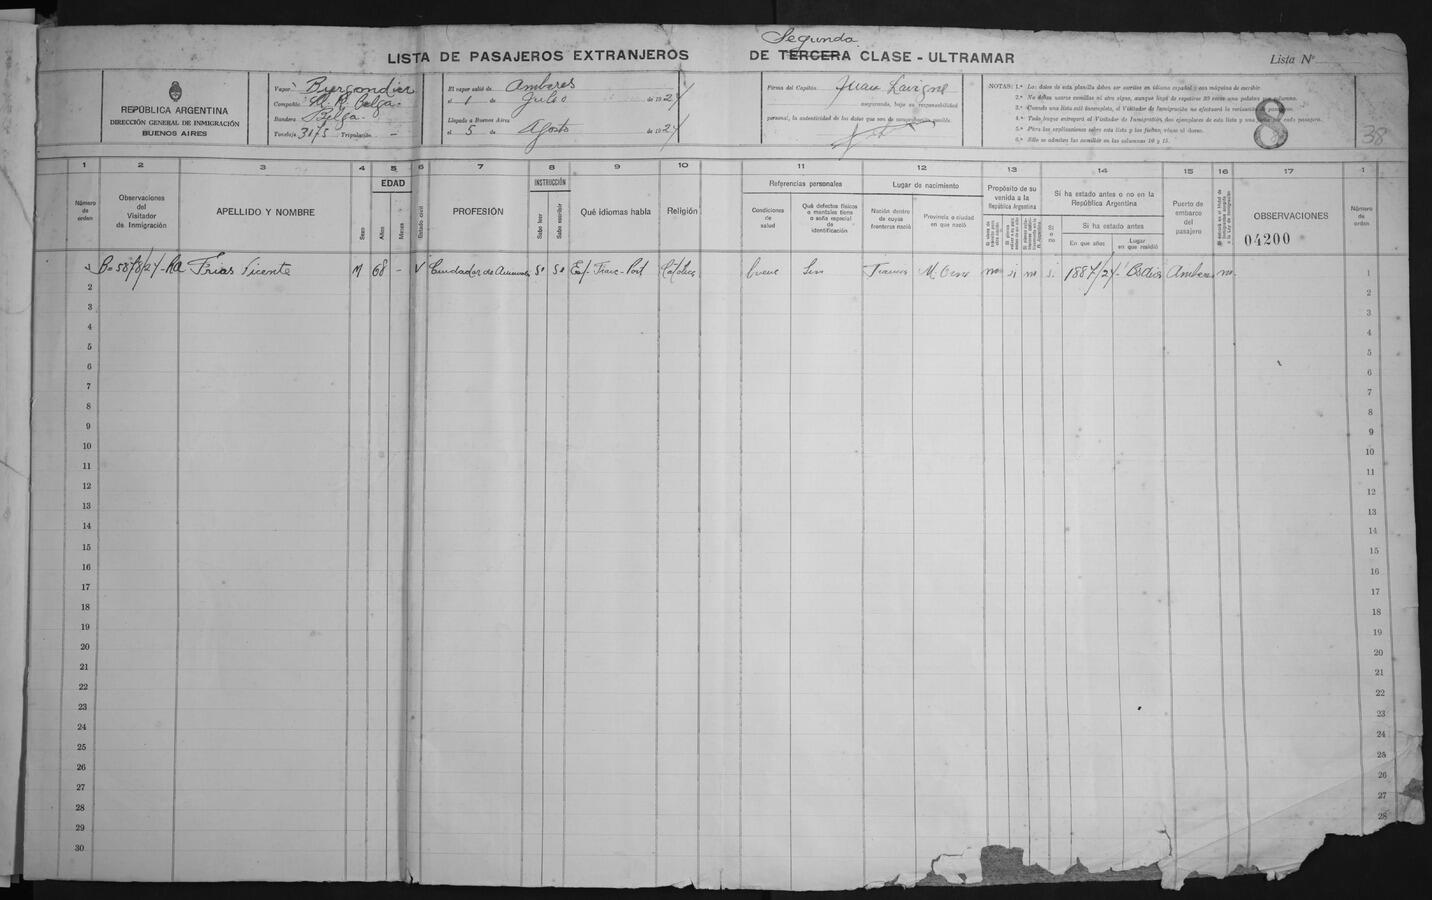 Segunda
LISTA DE PASAJEROS EXTRANJEROS DE TERCERA CLASE - ULTRAMAR
Lista Nº
REPÚBLICA ARGENTINA
DIRECCIÓN GENERAL DE INMIGRACIÓN
BUENOS AIRES
Vapor:
Compañía: Belga.
Bandera Belga.
Tonelaje 3175 Tripulación -
El vapor salió de Amberes
el 1 de Julio de 1924
Llegado a Buenos Aires
el 5 de Agosto de 1924
Firma del Capitán Juan Lavigne
asegurando, bajo su responsabilidad
personal, la autenticidad de los datos que son de comprobación posible.
NOTAS: 1.ª Los datos de esta planilla deben ser escritos en idioma español y con máquina de escribir.
2.ª No deben usarse comillas ni otro signo, aunque haya de repetirse 20 veces una palabra por columna.
3.ª Cuando una lista esté incompleta, el Visitador de Inmigración no efectuará la revisación de pasajeros.
4.ª Todo buque entregará al Visitador de Inmigración, dos ejemplares de esta lista y una ficha por cada pasajero.
5.ª Para las explicaciones sobre esta lista y las fichas, véase al dorso.
6.ª Sólo se admiten las comillas en las columnas 10 y 15.
8
38
1 2 3 4 5 6 7 8 9 10 11 12 13 14 15 16 17 1
Número de orden
Observaciones del Visitador de Inmigración
APELLIDO Y NOMBRE
Sexo
EDAD
Años
Meses
Estado civil
PROFESIÓN
INSTRUCCIÓN
Sabe leer
Sabe escribir
Qué idiomas habla
Religión
Referencias personales
Condiciones de salud
Qué defectos físicos o mentales tiene o seña especial de identificación
Lugar de nacimiento
Nación dentro de cuyas fronteras nació
Provincia o ciudad en que nació
Propósito de su venida a la República Argentina
Sí ha estado antes o no en la República Argentina
Si o no
Si ha estado antes
En que años
Lugar en que residió
Puerto de embarco del pasajero
OBSERVACIONES
04200
Número de orden
Frias Vicente M 68 - V Cuidador de Si Si Católica Buena Sin Francia no si no si 1887/24 Amberes no 1
2 2
3 3
4 4
5 5
6 6
7 7
8 8
9 9
10 10
11 11
12 12
13 13
14 14
15 15
16 16
17 17
18 18
19 19
20 20
21 21
22 22
23 23
24 24
25 25
26 26
27 27
28 28
29
30